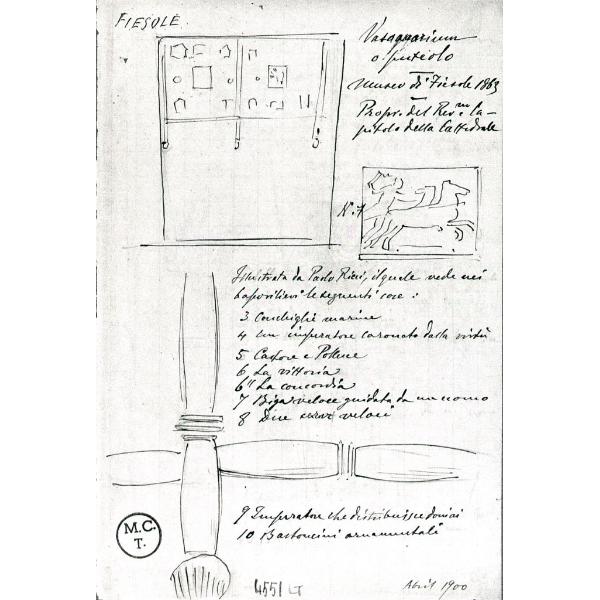 FIESOLE
Vasquarium
o puteolo
Museo di Fiesole 1863
Propr. del Rev.m Ca-
pitolo della Cattedrale
N. 7
Illustrata da Paolo Ricci, il quale vede nei
bassorilievi le seguenti cose :
3 Conchiglie marine
4 Un imperatore coronato dalla virtù
5 Castore e Polluce
6 La vittoria
6" La concordia
7 Biga veloce guidata da un uomo
8 Due veloci
9 Imperatore che distribuisce donai
10 Bastoncini ornamentali
M.C.
T.
4551 LT
Abril 1900